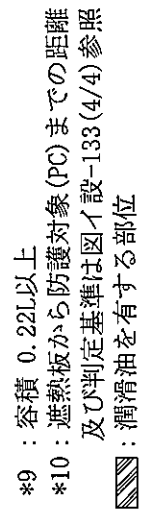 *9 : 容積 0.22L以上
*10 : 遮熱板から防護対象(PC)までの距離
及び判定基準は図イ設-133(4/4)参照
: 潤滑油を有する部位